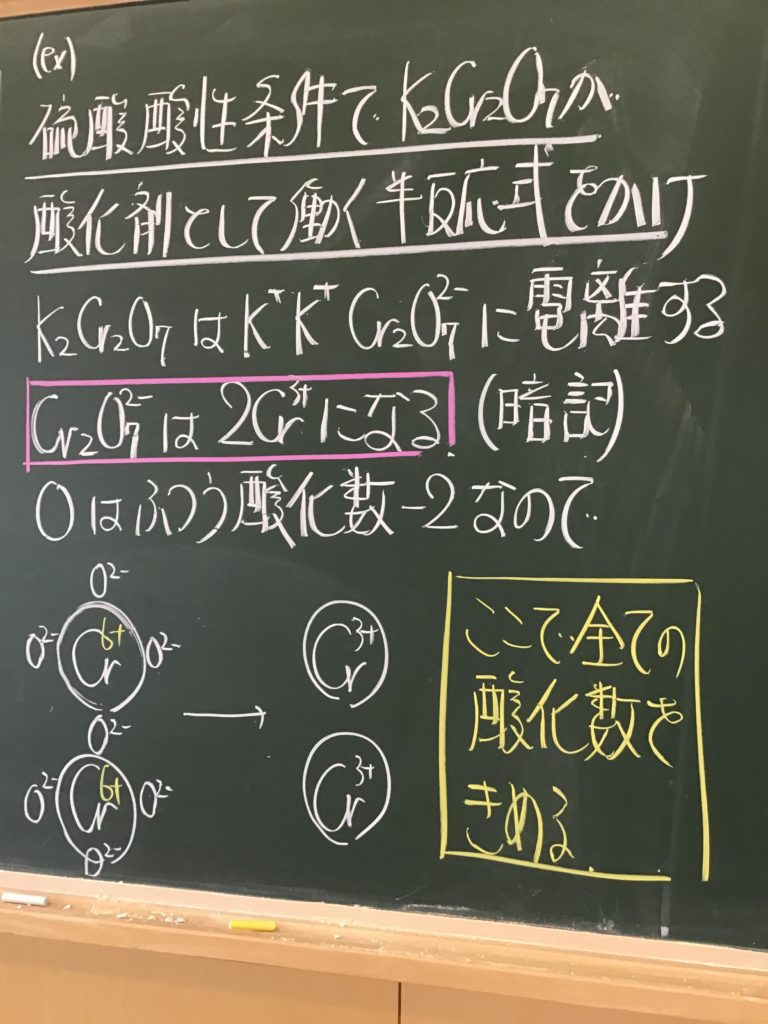 (ex)
硫酸酸性条件で K₂Cr₂O₇が
酸化剤として働く半反応式をかけ
K₂Cr₂O₇ は K⁺ K⁺ Cr₂O₇²⁻ に電離する
Cr₂O₇²⁻ は 2Cr³⁺ になる (暗記)
Oはふつう酸化数-2なので
O²⁻
O²⁻ Cr⁶⁺ O²⁻
O²⁻
O²⁻ Cr⁶⁺ O²⁻
O²⁻
→
Cr³⁺
Cr³⁺
ここで全ての
酸化数を
きめる